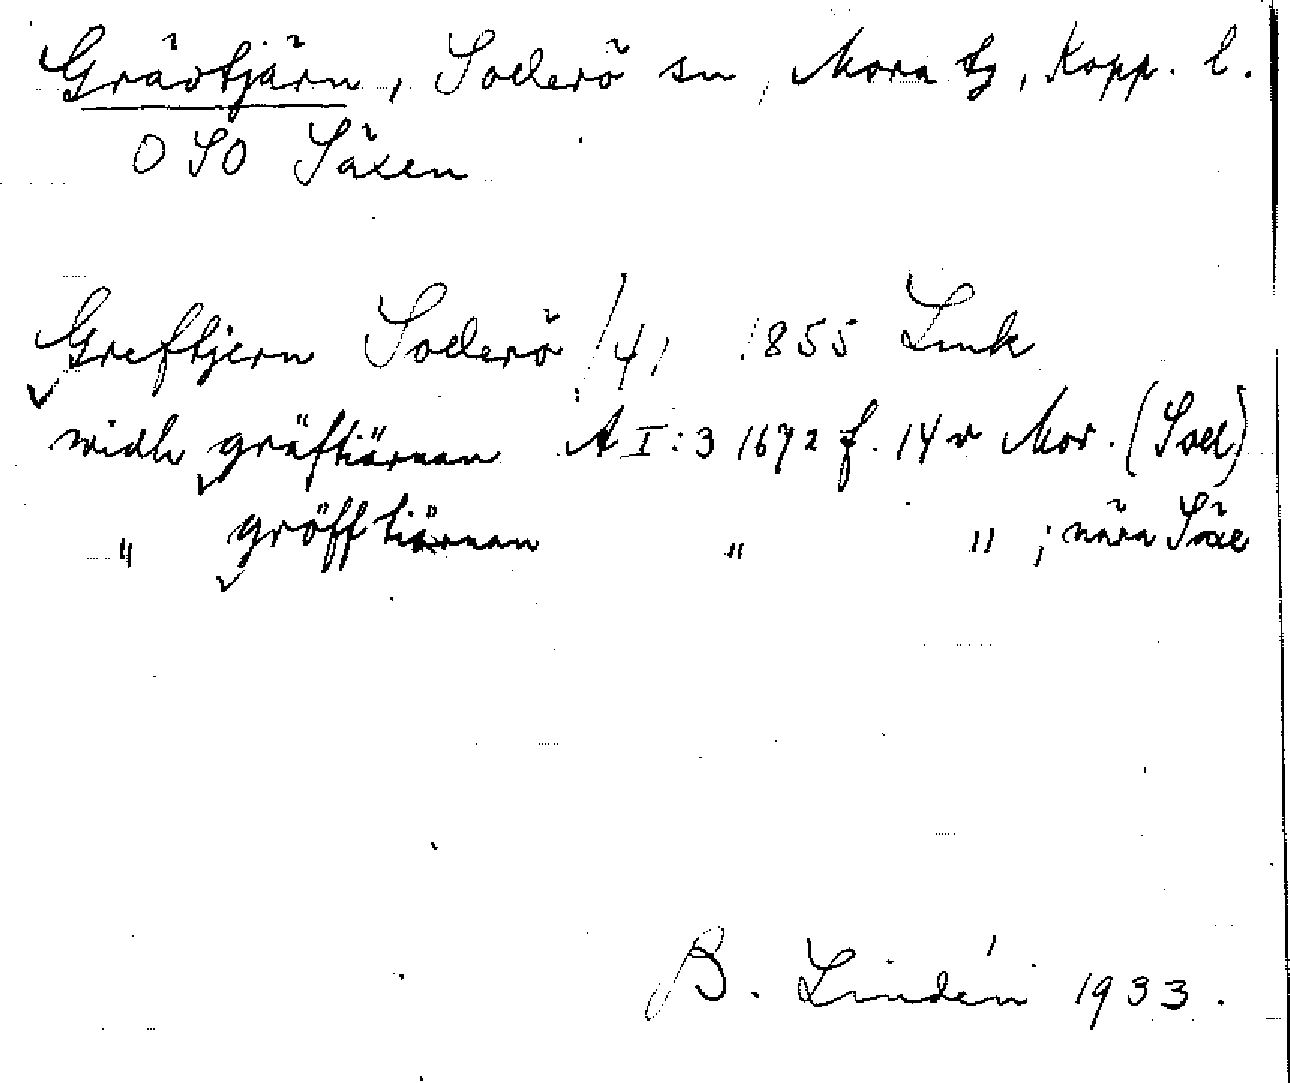 Grävtjärn, Sollerö sn, Mora tg, Kopp. l.
O SO Säxen
Greftjern Sollerö /41 1855 Lmk
widh gräftiärnan A I:3 1672 f. 14 v Mor. (Soll)
" gröfftiärnan " " ; nära Säxe
B. Lindén 1933.